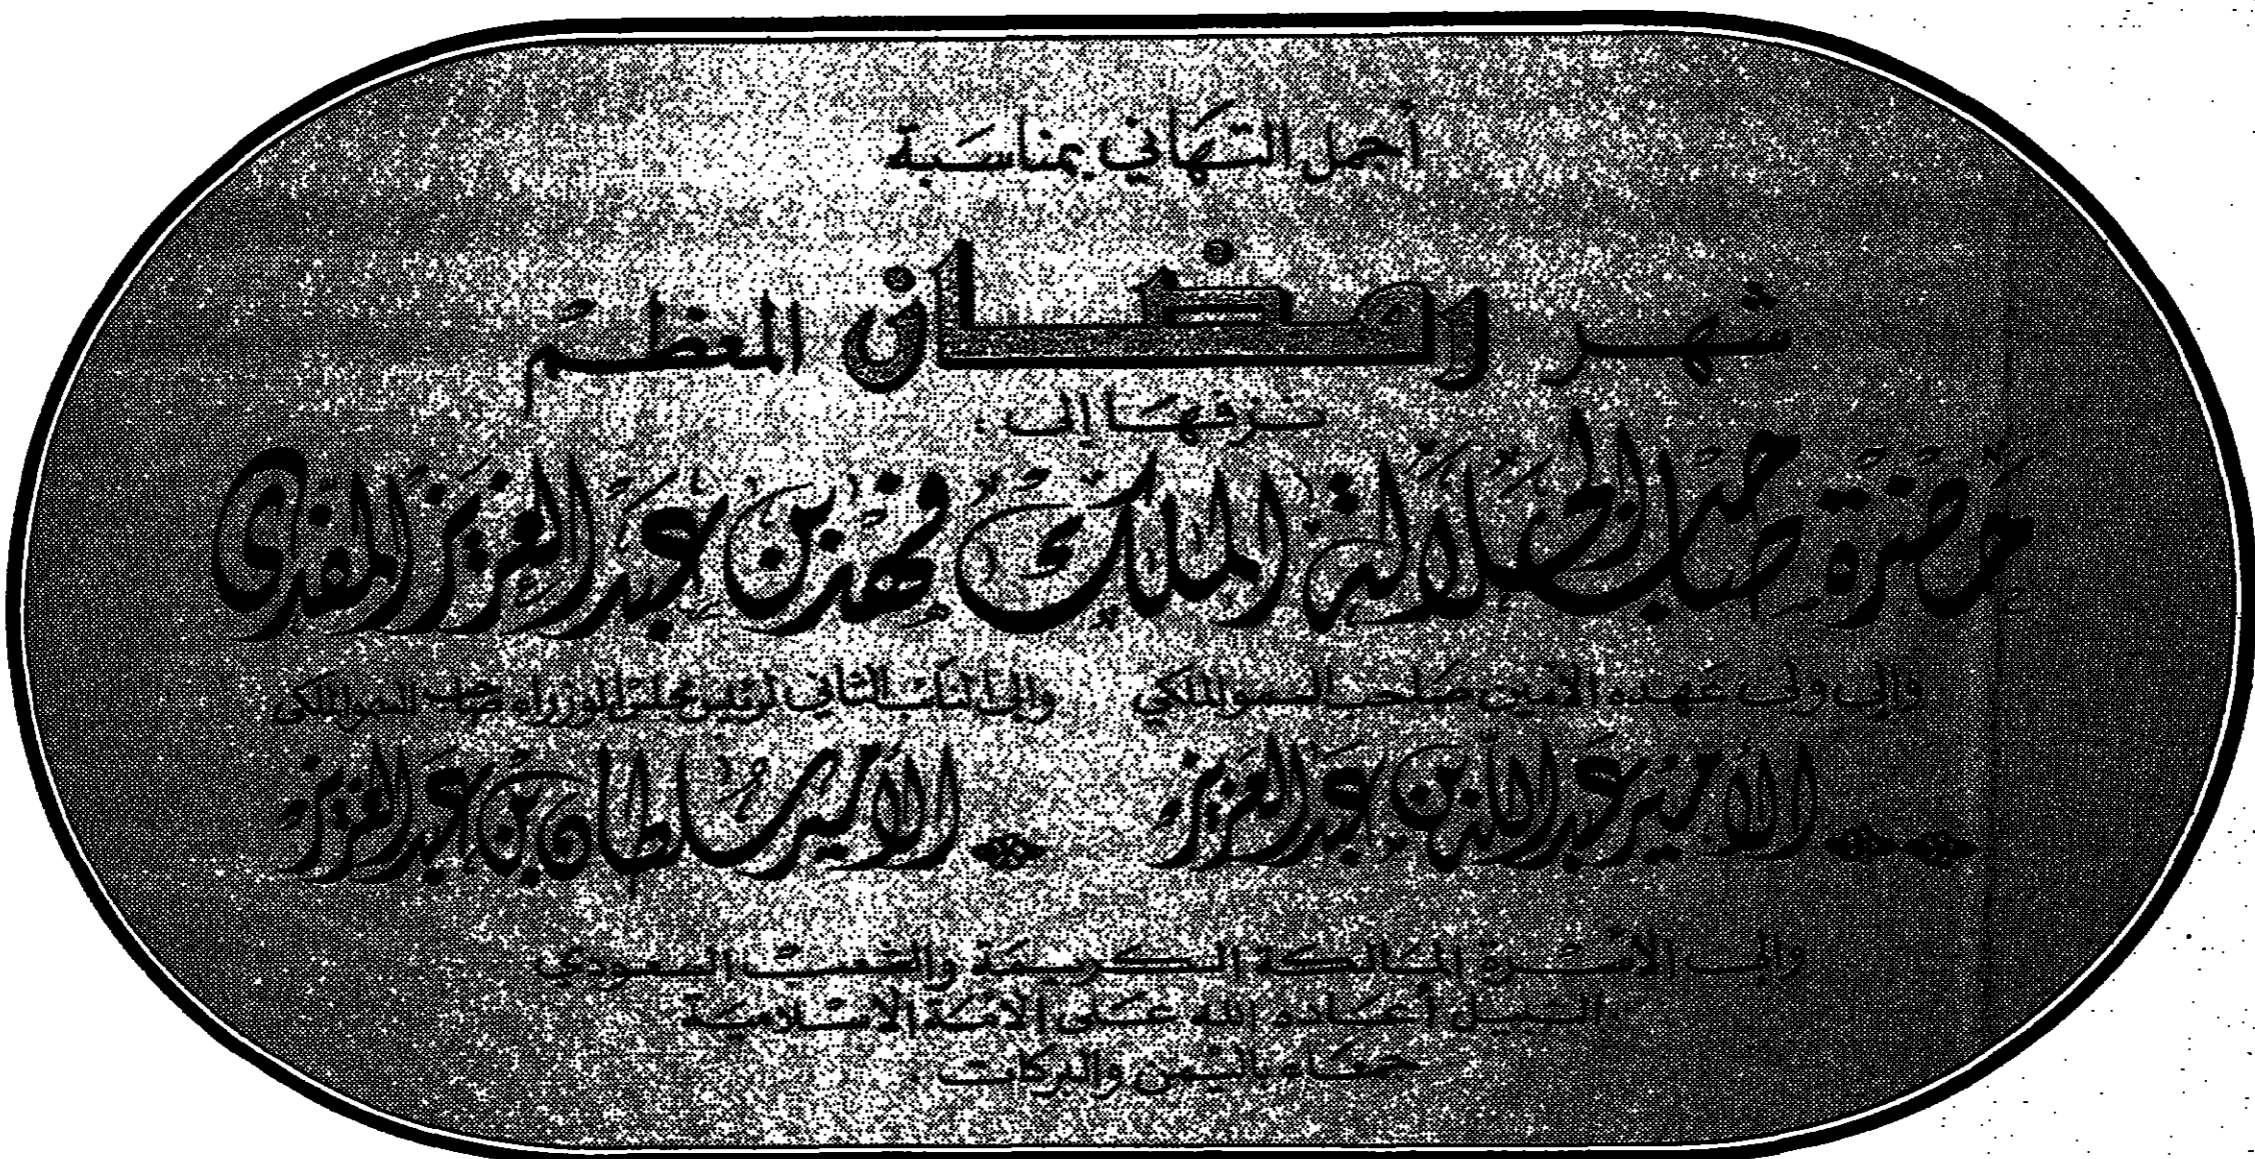 أجمل التهاني بمناسبة
شهر رمضان المعظم
نزفها إلى :
حضرة صاحب الجلالة الملك فهد بن عبد العزيز المفدى
وإلى ولي عهده الأمين صاحب السمو الملكي
الأمير عبد الله بن عبد العزيز
وإلى النائب الثاني لرئيس مجلس الوزراء صاحب السمو الملكي
الأمير سلطان بن عبد العزيز
وإلى الأسرة المالكة الكريمة والشعب السعودي
النبيل أعاده الله على الأمة الإسلامية
جمعاء باليمن والبركات